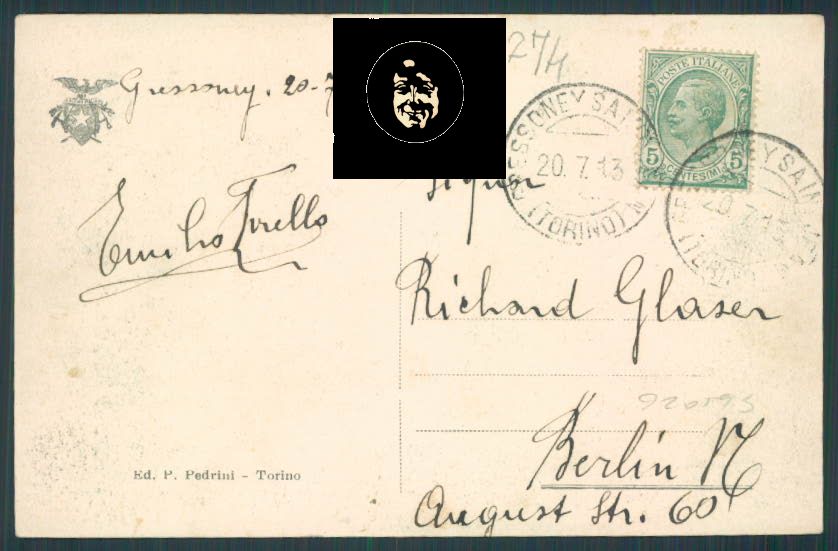 Gressoney. 20-7
274
POSTE ITALIANE
5 CENTESIMI 5
GRESSONEY SAINT
20. 7. 13
(TORINO)
Signor
Emilio Tirello
Richard Glaser
920593
Berlin N
August Str. 60
Ed. P. Pedrini - Torino